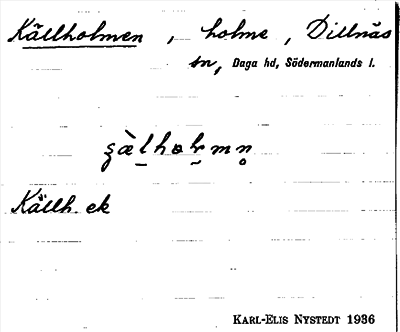 Källholmen, holme, Dillnäs
sn, Daga hd, Södermanlands l.
Källh. ek
KARL-ELIS NYSTEDT 1936